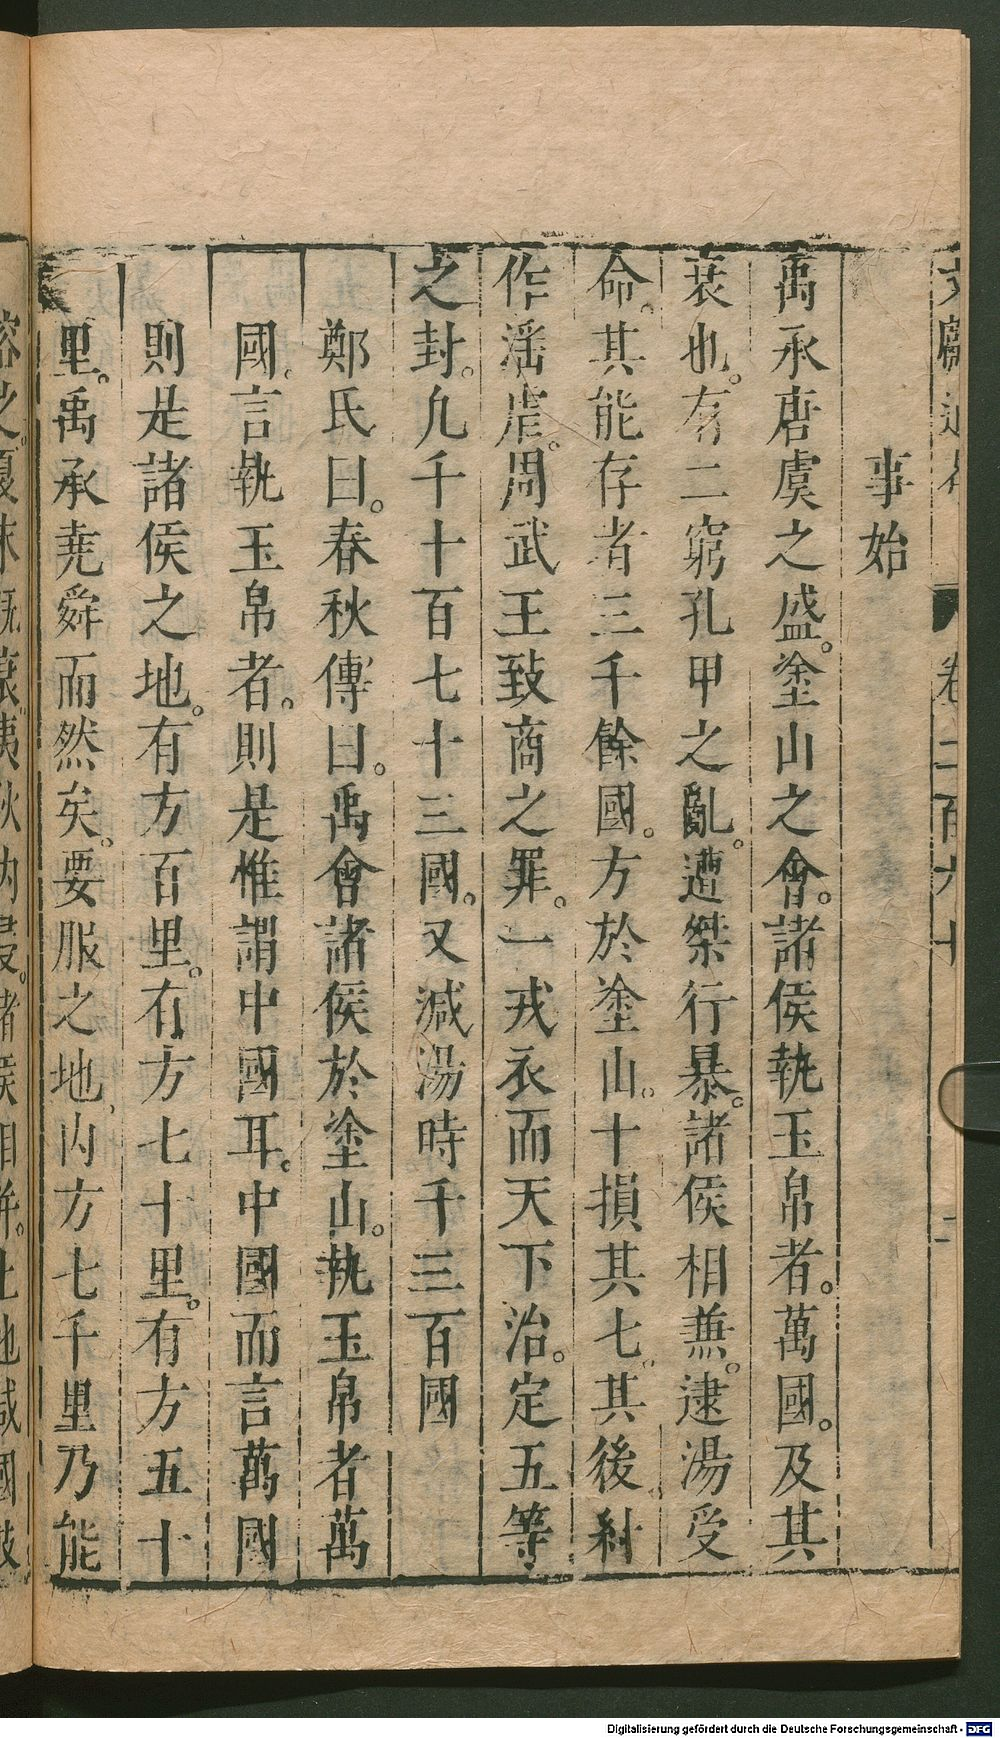 文獻通考 卷二百六十 二
事始
禹承唐虞之盛。塗山之會。諸侯執玉帛者。萬國。及其
衰也。有二窮孔甲之亂。遭桀行暴。諸侯相兼。逮湯受
命。其能存者三千餘國。方於塗山。十損其七。其後紂
作滛虐。周武王致商之罪。一戎衣而天下治。定五等
之封。凢千十百七十三國。又減湯時千三百國
鄭氏曰。春秋傳曰。禹會諸侯於塗山。執玉帛者萬
國。言執玉帛者。則是惟謂中國耳。中國而言萬國
則是諸侯之地。有方百里。有方七十里。有方五十
里。禹承堯舜而然矣。要服之地、内方七千里乃能